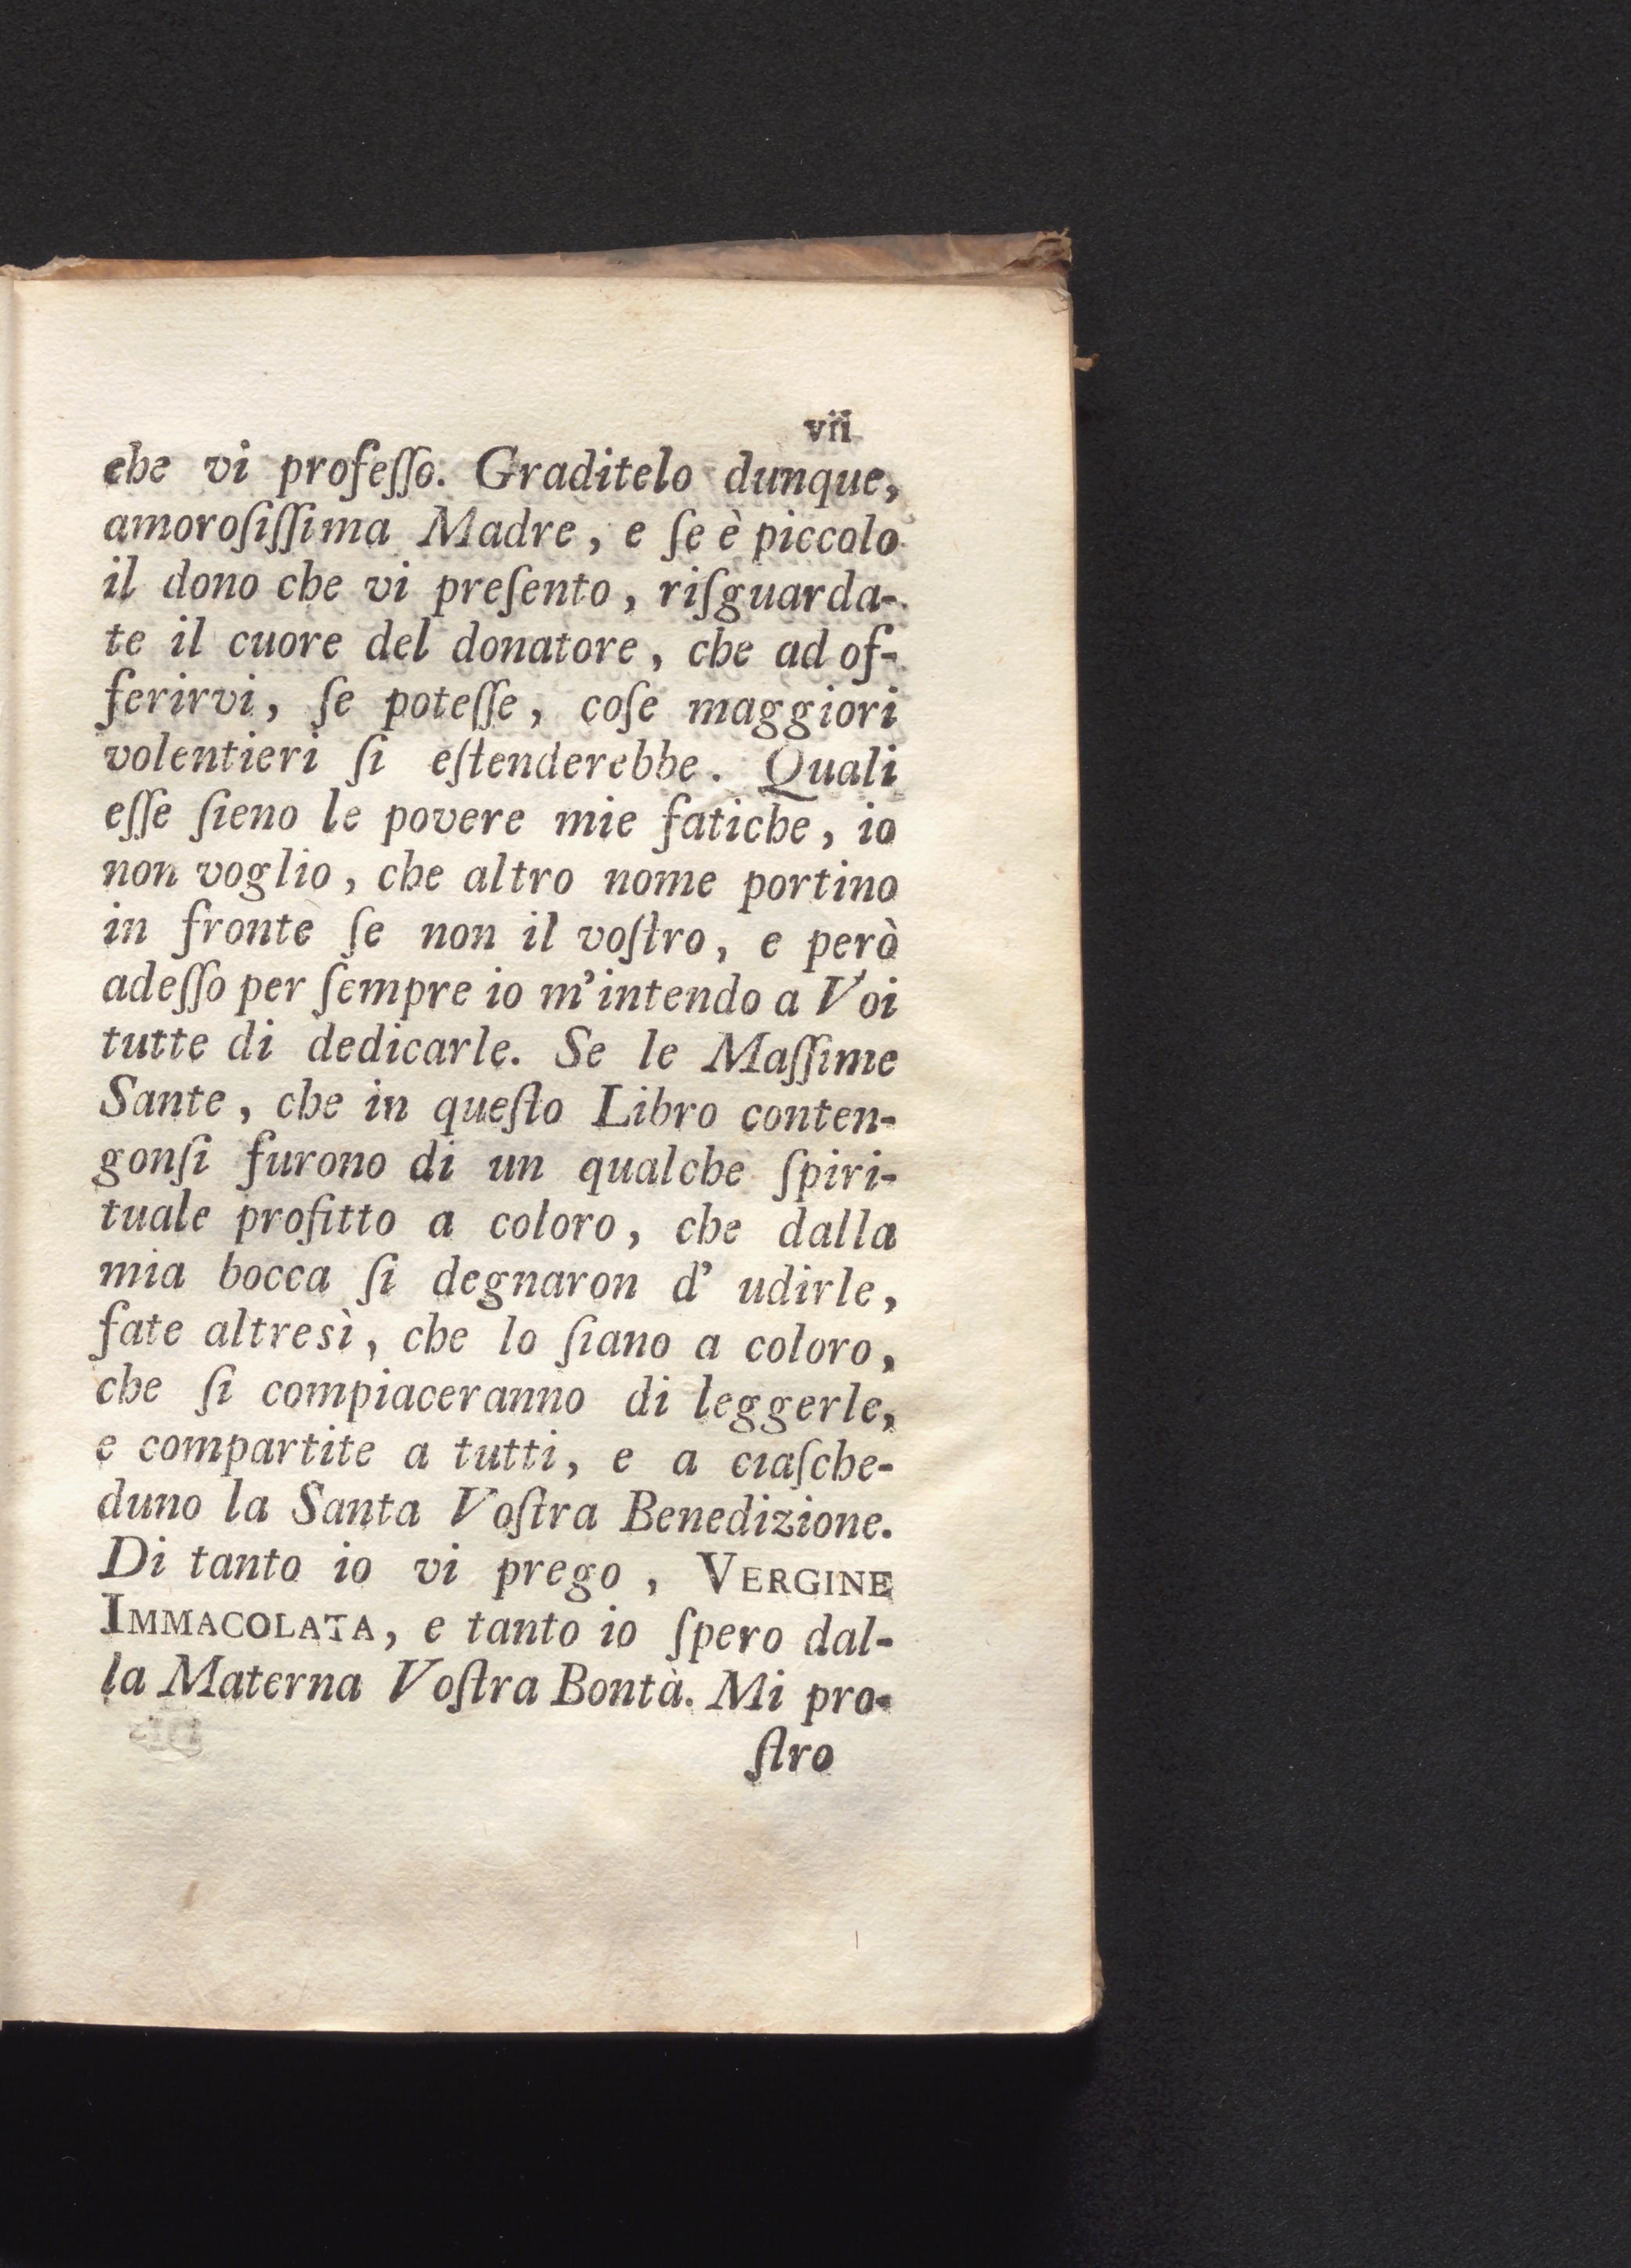 vii
che vi profeſſo. Graditelo dunque,
amoroſiſſima Madre, e ſe è piccolo
il dono che vi preſento, riſguarda-
te il cuore del donatore, che ad of-
ferirvi, ſe poteſſe, coſe maggiori
volentieri ſi eſtenderebbe. Quali
eſſe ſieno le povere mie fatiche, io
non voglio, che altro nome portino
in fronte ſe non il voſtro, e però
adeſſo per ſempre io m'intendo a Voi
tutte di dedicarle. Se le Maſſime
Sante, che in queſto Libro conten-
gonſi furono di un qualche ſpiri-
tuale profitto a coloro, che dalla
mia bocca ſi degnaron d' udirle,
fate altresì, che lo ſiano a coloro,
che ſi compiaceranno di leggerle,
e compartite a tutti, e a ciaſche-
duno la Santa Voſtra Benedizione.
Di tanto io vi prego, VERGINE
IMMACOLATA, e tanto io ſpero dal-
la Materna Voſtra Bontà. Mi pro-
ſtro